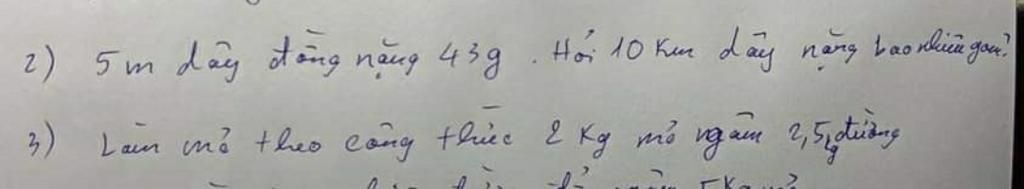 2) 5m dây đồng nặng 43g. Hỏi 10 Km dây nặng bao nhiêu gam?
3) Làm mơ theo công thức 2 Kg mơ ngâm 2,5kg đường
5Kg mơ?